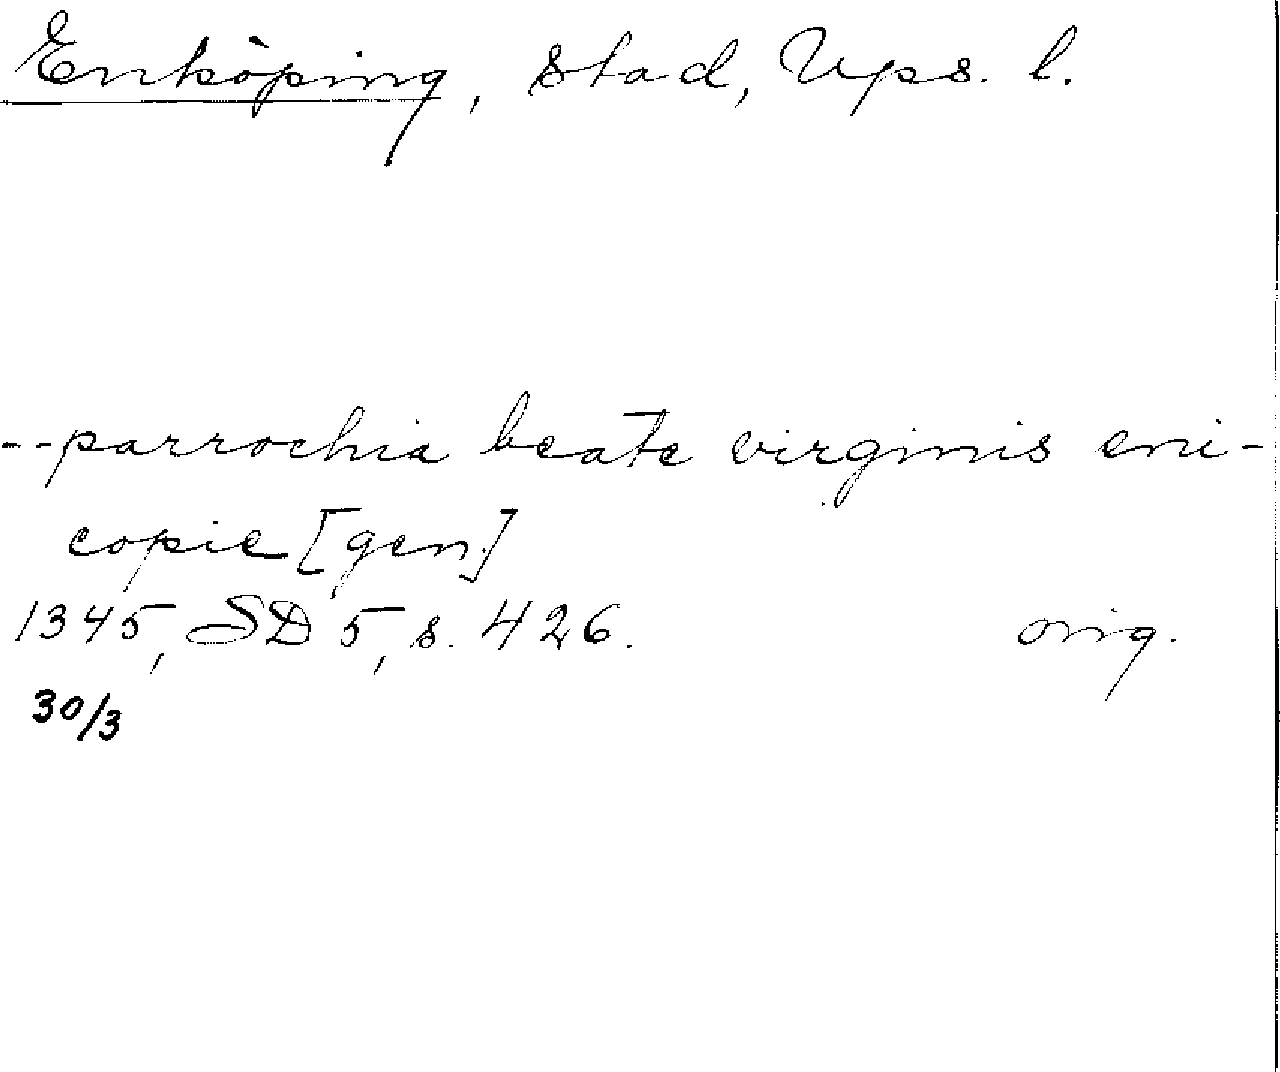 Enköping, stad, Ups. l.
--parrochia beate virginis eni-
copie [gen.]
1345, SD 5, s. 426. orig.
30/3